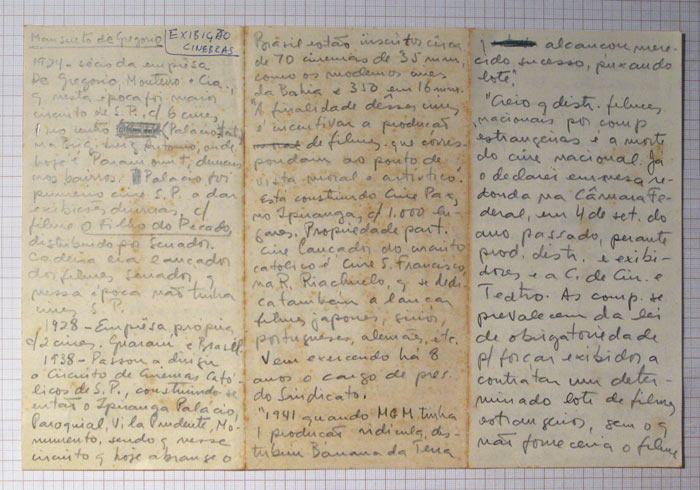 Mansueto de Gregorio
EXIBIÇÃO
CINEBRAS
1924 - sócio da emprêsa
De Gregorio, Monteiro e Cia.,
q nesta época foi maior
circuito de S.P., c/ 6 cines,
1 no centro (Palacio
na Brig. Luiz Antonio, onde
hoje é Paramount, demais
nos bairros. Palacio foi
primeiro cine S.P. a dar
exibições diurnas, c/
filme O Filho do Pecado,
distribuido por Senador.
Cadeira era lançador
dos filmes Senador, q
nessa época não tinha
cines S.P.
1928 - Emprêsa propria
c/2 cines. Guarani e Brasil.
1938 - Passou a dirigir
o Circuito de Cinemas Cató-
licos de S.P., construindo-se
então o Ipiranga Palacio,
Paroquial, Vila Prudente, Mo-
numento, sendo q nesse
circuito q hoje abrange o
Brasil estão inscritos cêrca
de 70 cinemas de 35 mm,
como os modernos cines
da Bahia e 350 em 16 mm.
"A finalidade dêsses cines
é incentivar a produção
de filmes que corres-
pondam ao ponto de
vista moral e artístico".
Está construindo Cine Pax,
no Ipiranga, c/ 1.000 lu-
gares. Propriedade part.
Cine lançador do circuito
católico é Cine S. Francisco,
na R. Riachuelo, q se dedi-
ca também a lançar
filmes japones, sirios,
portugueses, alemães, etc.
Vem exercendo há 8
anos o cargo de pres.
do Sindicato.
"1941 quando MGM tinha
1 produção ridicula, dis-
tribuiu Banana da Terra
q alcançou mere-
cido sucesso, puxando
lote".
"Creio q distr. filmes
nacionais por comp.
estrangeiras é a morte
do cine nacional. Já
o declarei em mesa re-
donda na Câmara Fe-
deral, em 4 de set. do
ano passado, perante
prod. distr. e exibi-
dores e a C. de Cin. e
Teatro. As comp. se
prevalecem da lei
de obrigatoriedade
p/ forçar exibidor a
contratar um deter-
minado lote de filmes
estrangeiros, sem o q
não forneceria o filme